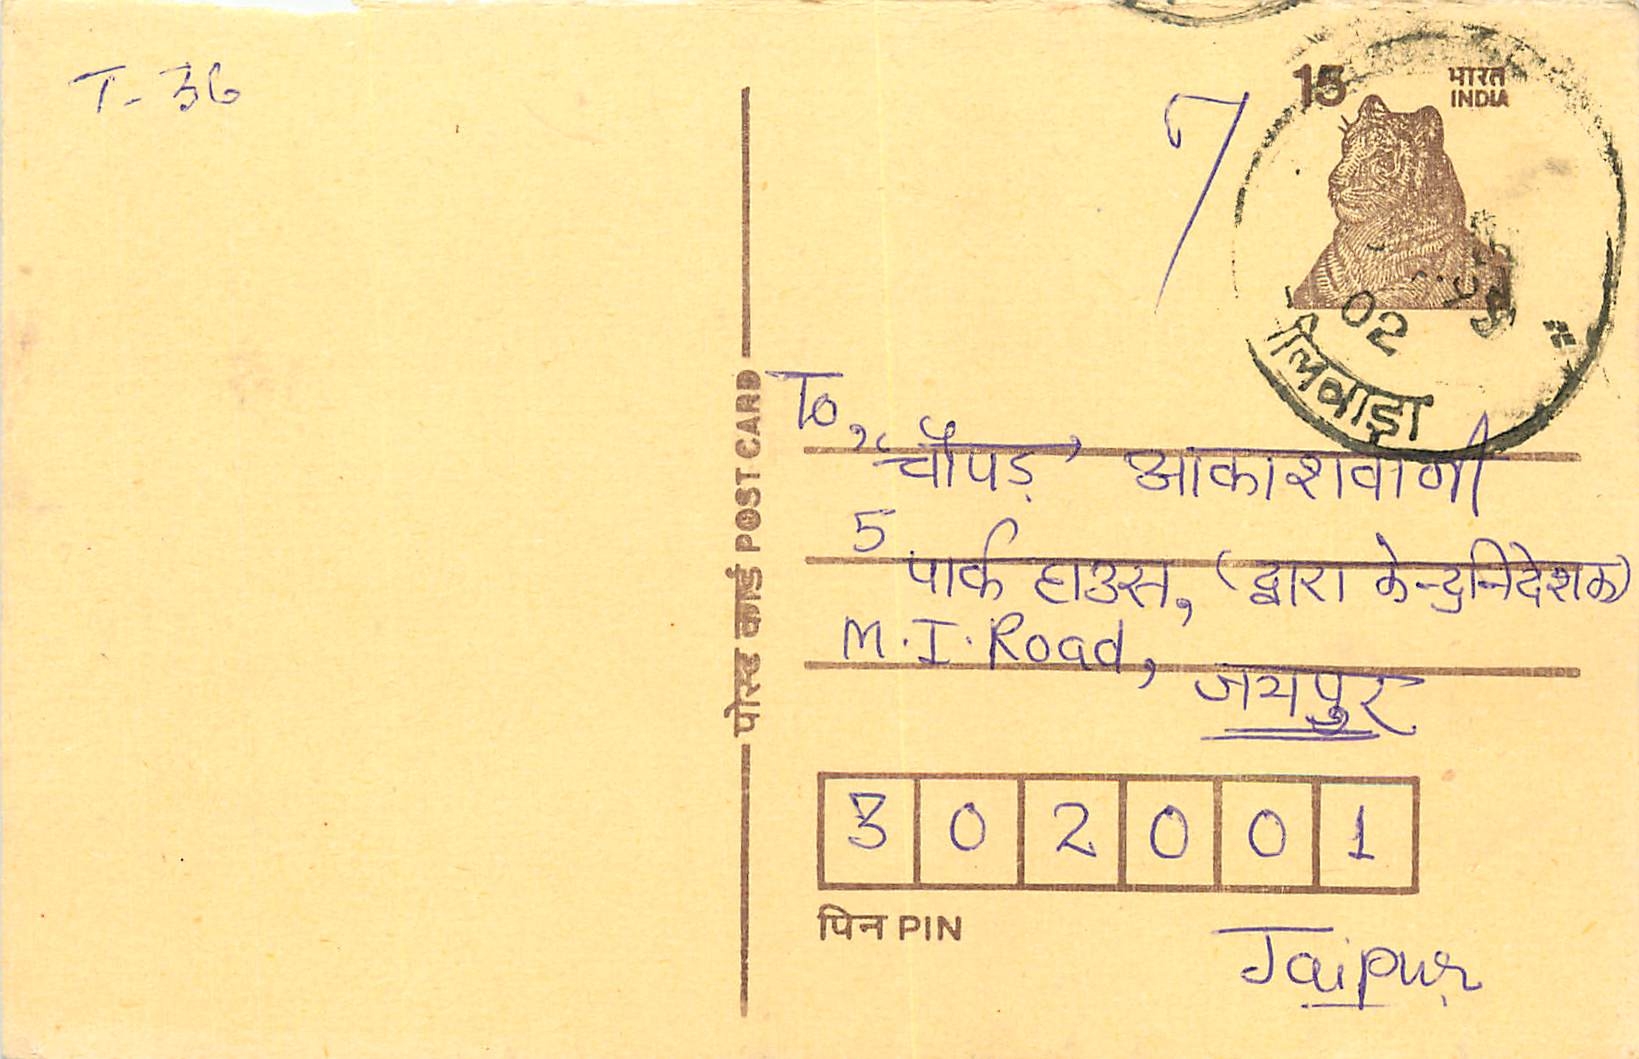 T-36
7
15 भारत
INDIA
02
लवाड़ा
पोस्ट कार्ड POST CARD
To,
“चौपड़’ आकाशवाणी
5
पार्क हाउस, (द्वारा केन्द्रनिदेशक)
M.I. Road,
जयपुर
3 0 2 0 0 1
पिन PIN
Jaipur